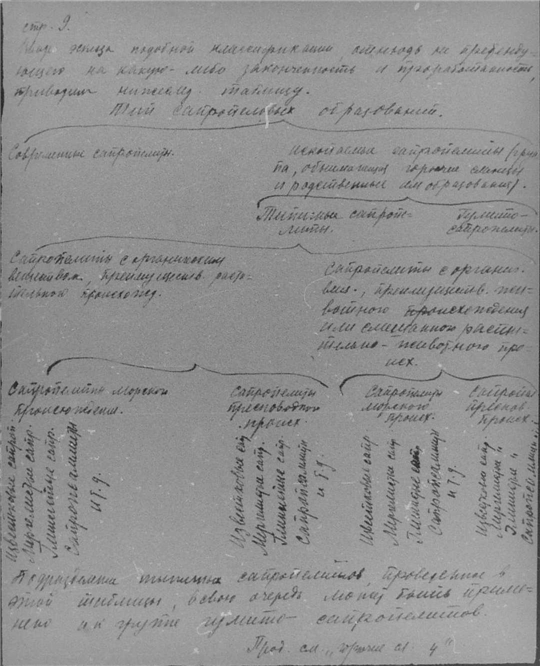 стр. 9.
подобной классификации, отнюдь не претенду-
ющего на какую-либо законченность и проработанность,
приводим нижеслед. таблицу.
Тип сапропелевых образований.
Современные сапропелиты.
Ископаемые сапропелиты (груп-
па, обнимающая горючие сланцы
и родственные им образования).
Типичные сапропе-
литы.
Гумито-
сапропелиты.
Сапропелиты с органическим
веществом, преимуществ. расти-
тельного происхожд.
Сапропелиты с органич.
вещ., преимуществ. жи-
вотного происхождения
или смешанного расти-
тельно-животного про-
исх.
Сапропелиты морского
происхождения.
Сапропелиты
пресноводного
происх.
Сапропелиты
морского
происх.
Сапропел.
пресновод.
происх.
Известковые сапроп.
Мергилистые сапр.
Глинистые сапр.
Сапропсаммиты
и т.д.
Известковые сапр.
Мергилистые сапр.
Глинистые сапр.
Сапропсаммиты
и т.д.
Известковые сапр.
Мергилистые сапр.
Глинистые сап.
Сапропсаммиты
и т.д.
Известков. сапр.
Мергилист. "
Глинист. "
Сапропсаммит.
Подразделения типичных сапропелитов, проведенное в
этой таблице, в свою очередь может быть приме-
нено и к группе гумито-сапропелитов.
Прод. см.